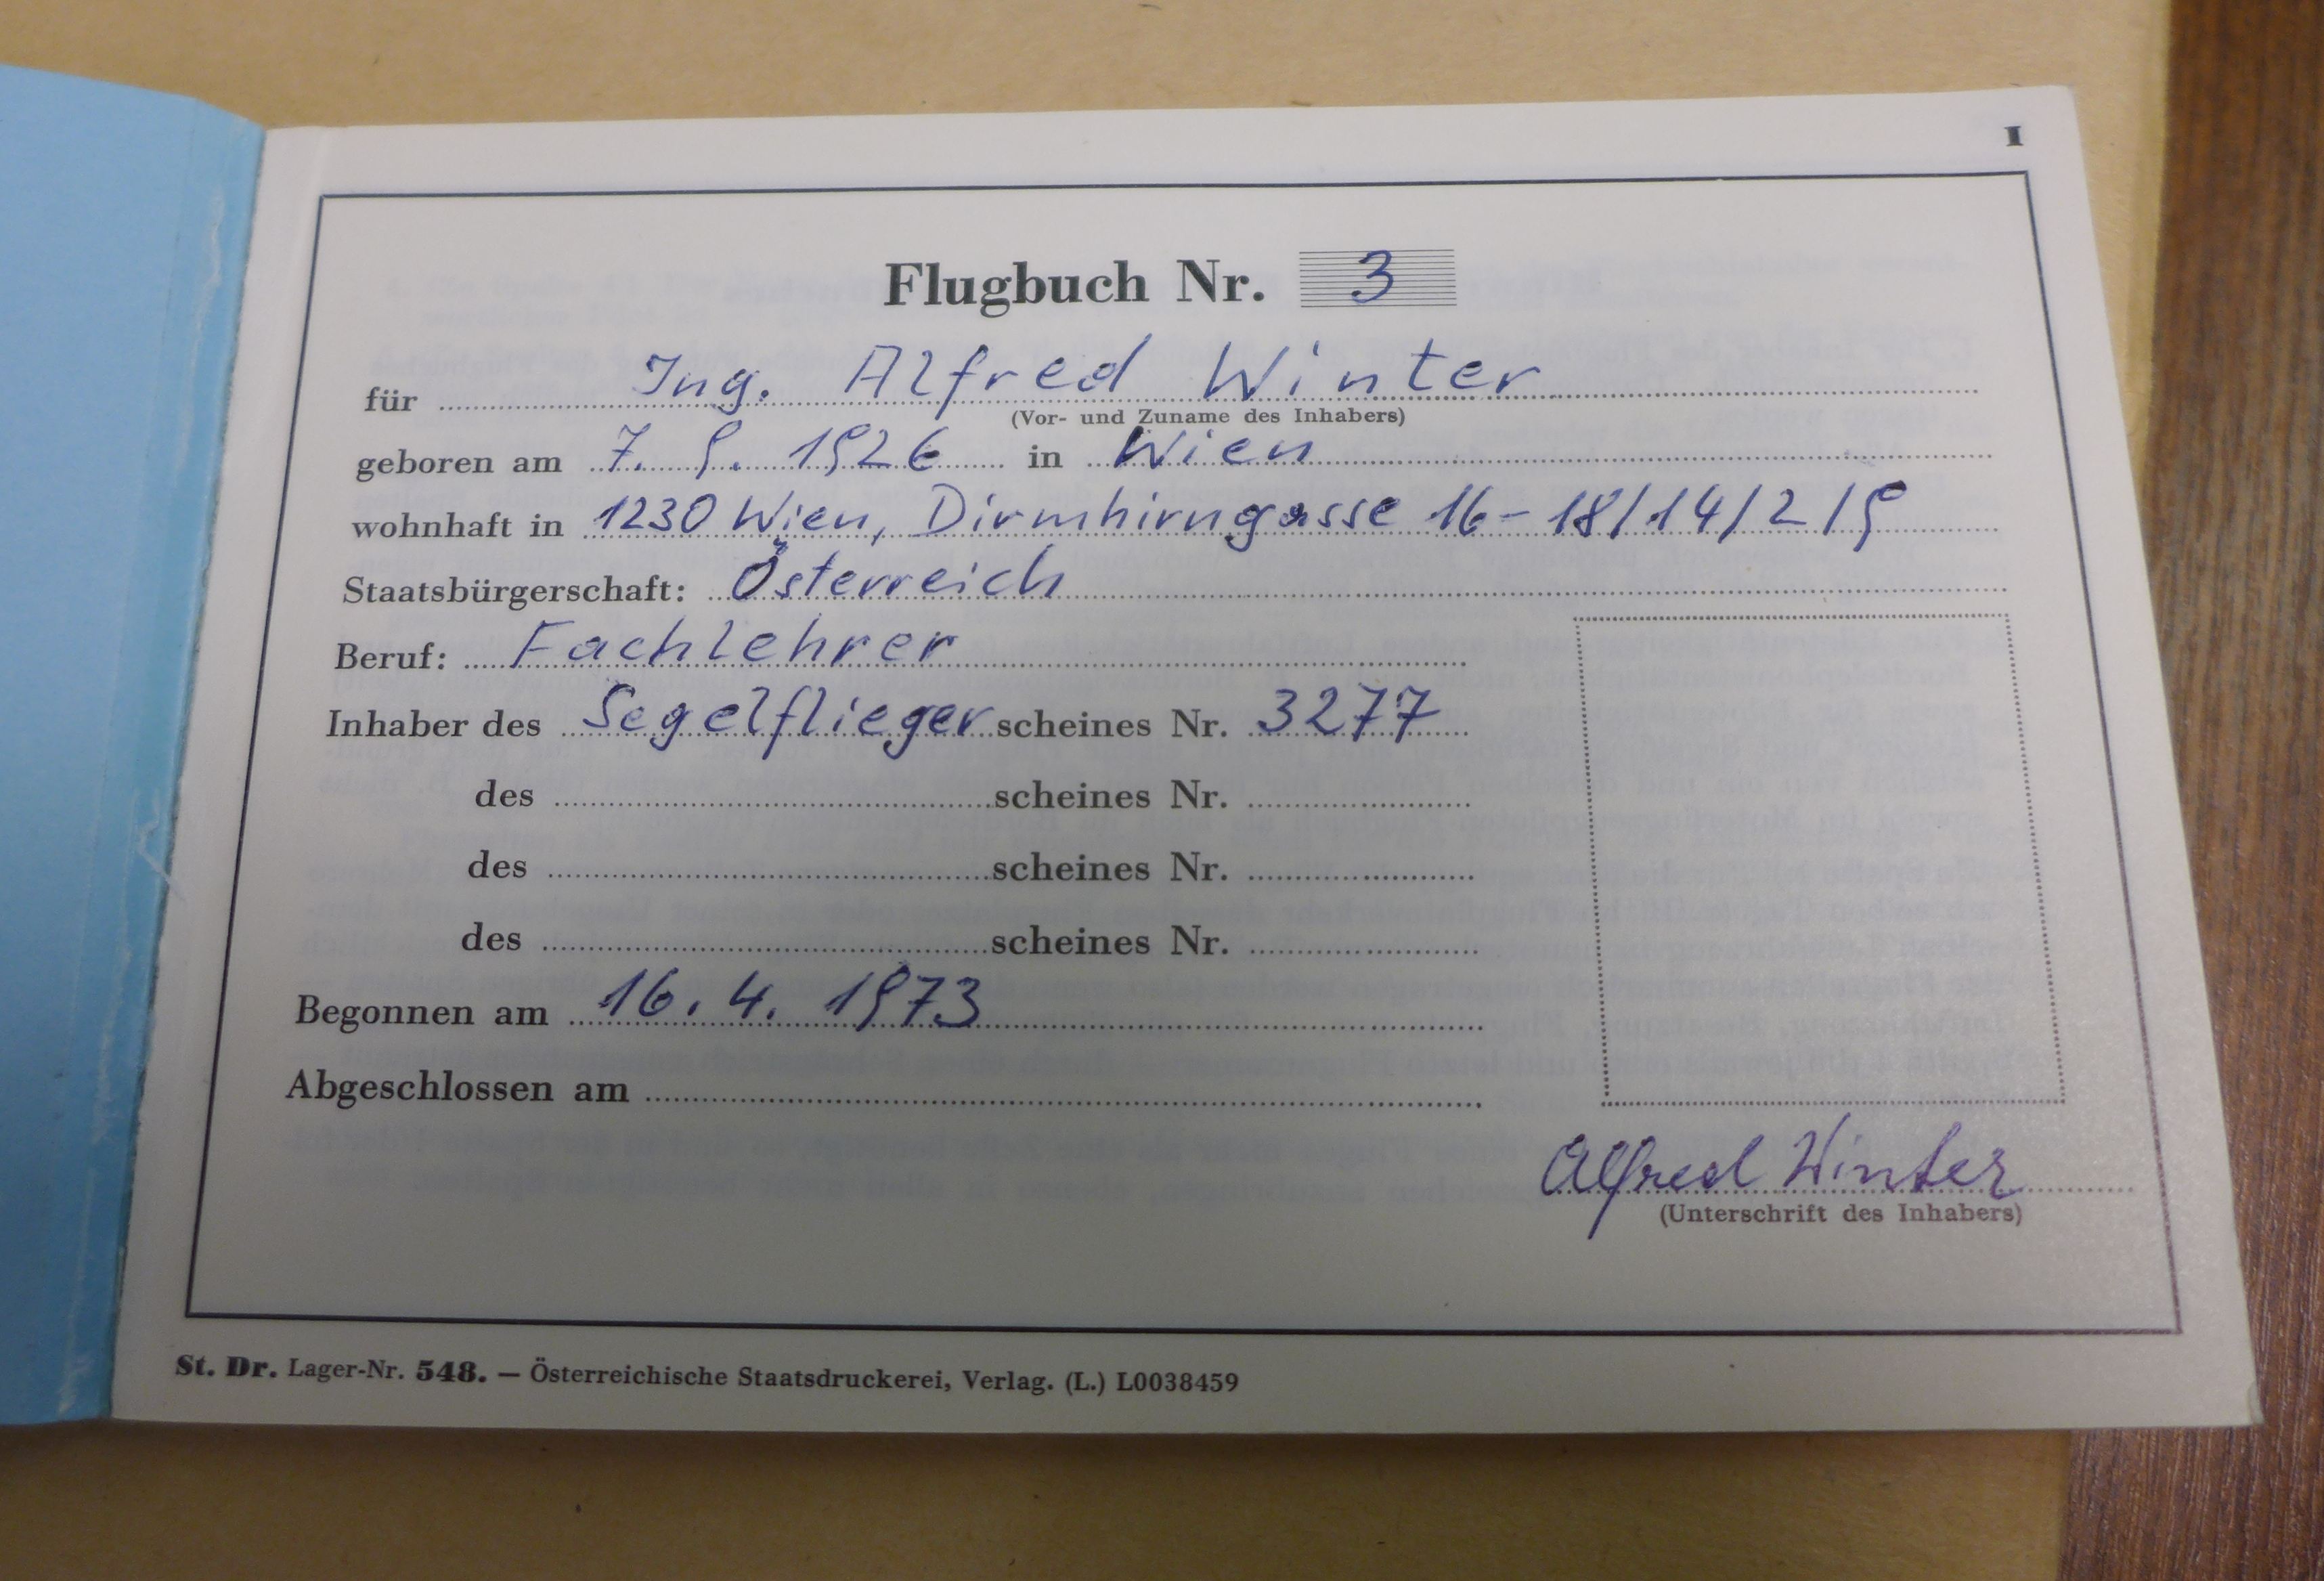 I
Flugbuch Nr. 3
für Ing. Alfred Winter
(Vor- und Zuname des Inhabers)
geboren am 7. 9. 1926 in Wien
wohnhaft in 1230 Wien, Dirmhirngasse 16-18/14/2/9
Staatsbürgerschaft: Österreich
Beruf: Fachlehrer
Inhaber des Segelflieger scheines Nr. 3277
des scheines Nr.
des scheines Nr.
des scheines Nr.
Begonnen am 16. 4. 1973
Abgeschlossen am
Alfred Winter
(Unterschrift des Inhabers)
St. Dr. Lager-Nr. 548. — Österreichische Staatsdruckerei, Verlag. (L.) L0038459